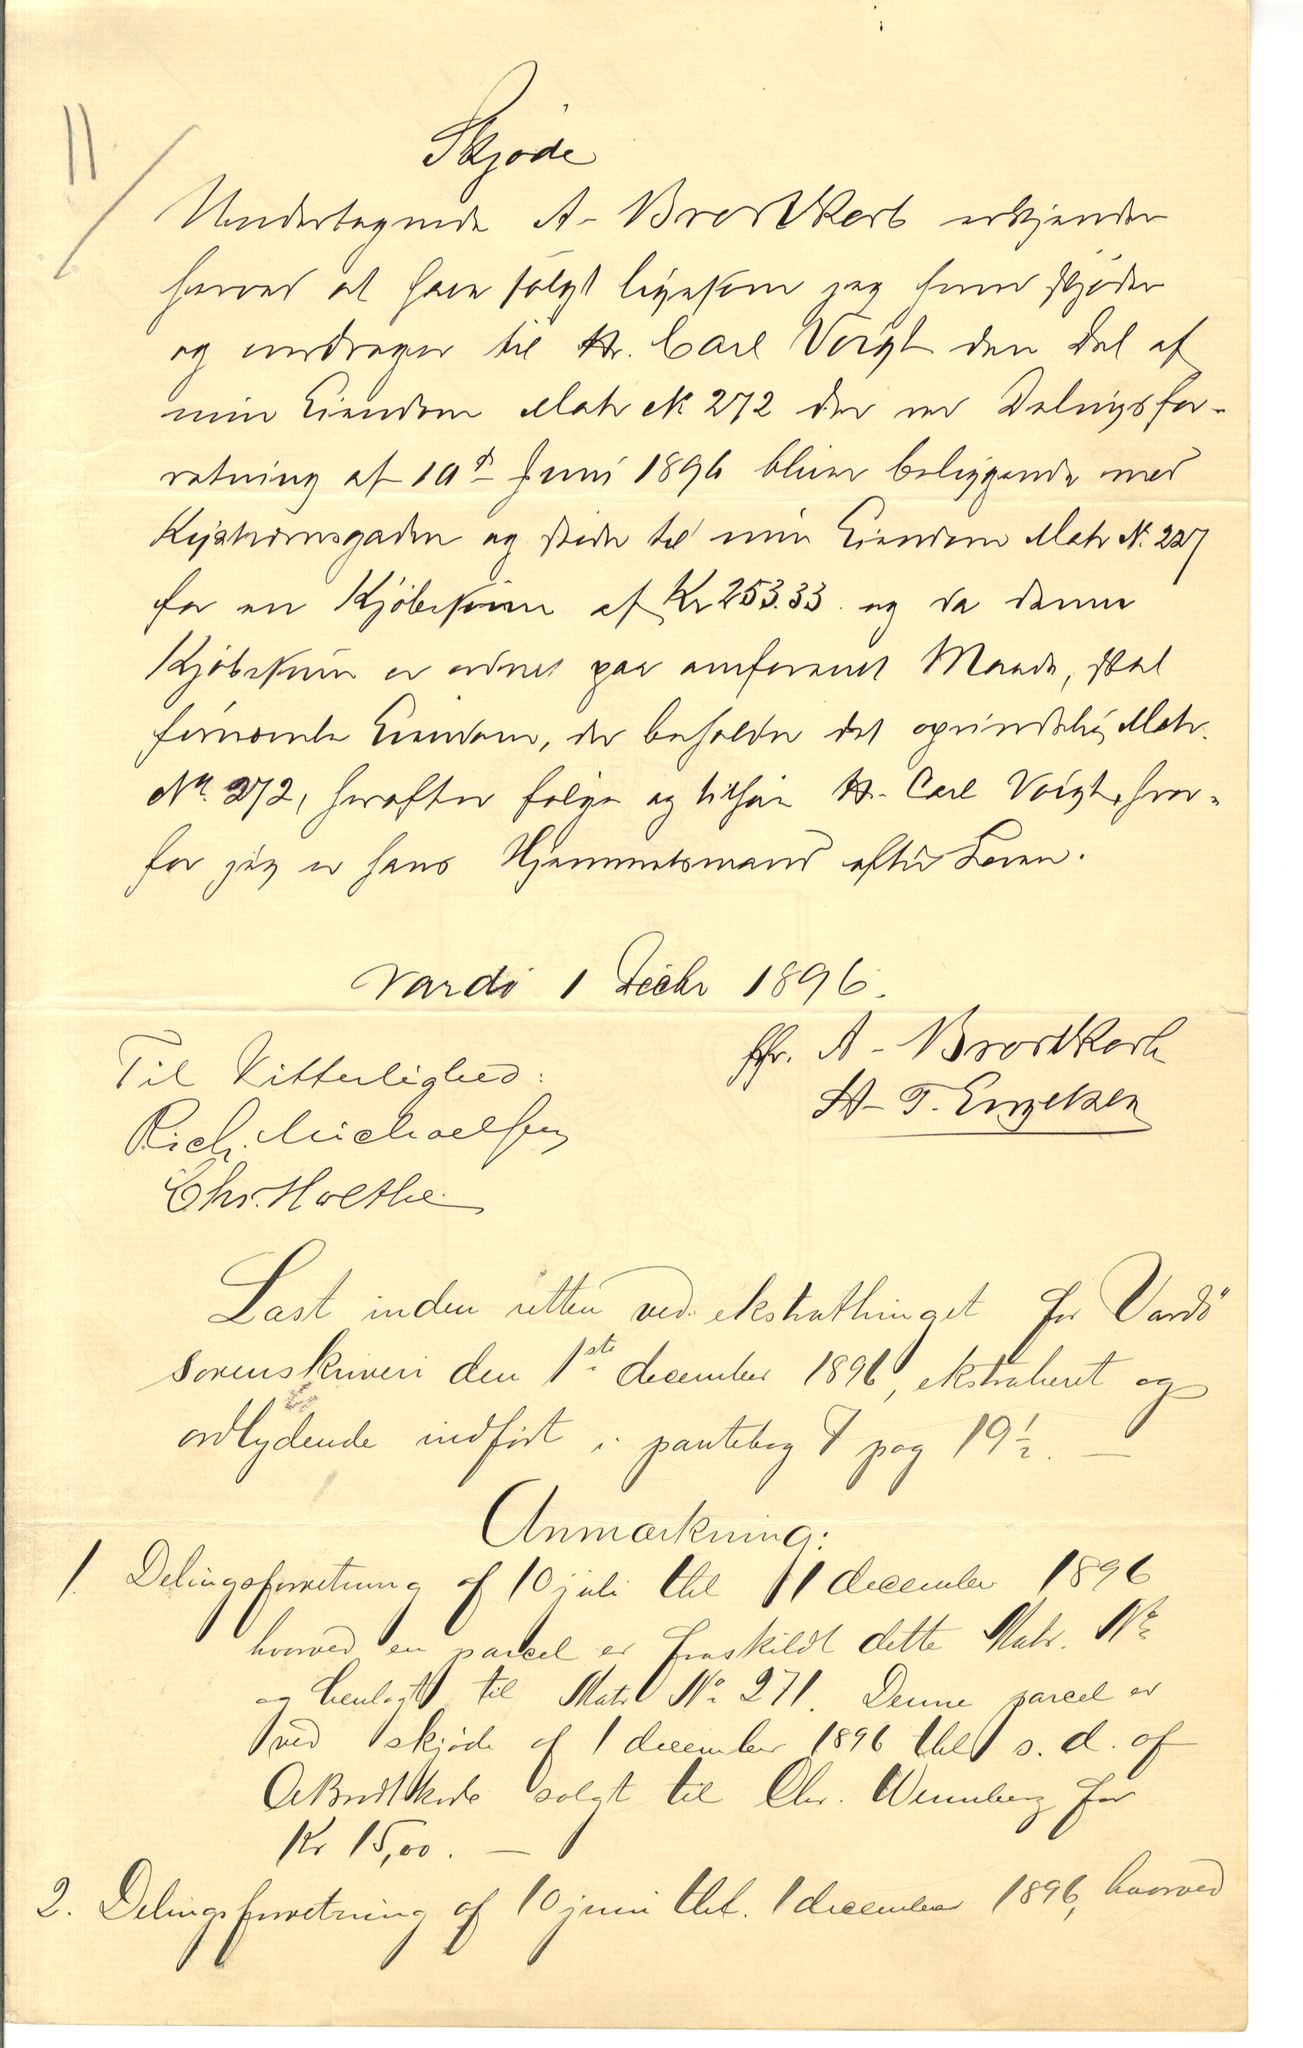 11
Skjøde
Undertegnede A. Brodtkorb erkjender
herved at have solgt ligesom jeg herved skjøder
og overdrager til Hr. Carl Voigt den Del af
min Eiendom Matr № 272 der ved Delingsfor-
retning af 10d Juni 1896 bliver beliggende med
og støder til min Eiendom Matr N. 227
for en Kjøbesum af Kr 253.33 og da denne
Kjøbesum er ordnet paa omforenet Maade, skal
førnævnte Eiendom, der beholder det oprindelig Matr.
No. 272, herefter følge og tilhøre Hr. Carl Voigt, hvor-
for jeg er hans Hjemmelsmand efter Loven.
Vardö 1 Decbr 1896.
ppr. A. Brodtkorb
Til Vitterlighed:
Rich. Michaelsen
Chr. Holthe
Læst inden retten ved ekstrathinget for Vardö
sorenskriveri den 1ste december 1896, ekstraheret og
ordlydende indført i pantebog 7 pag 19½. —
Anmærkning:
1. Delingsforretning af 10 juli thl 1 december 1896
hvorved en parcel er fraskildt dette Matr. No
og henlagt til Matr No 271. Denne parcel er
ved skjøde af 1 december 1896 thl s. d. af
A Brodtkorb solgt til Chr. Wennberg for
Kr 15,00. —
2. Delingsforretning af 10 juni thl. 1 december 1896, hvorved